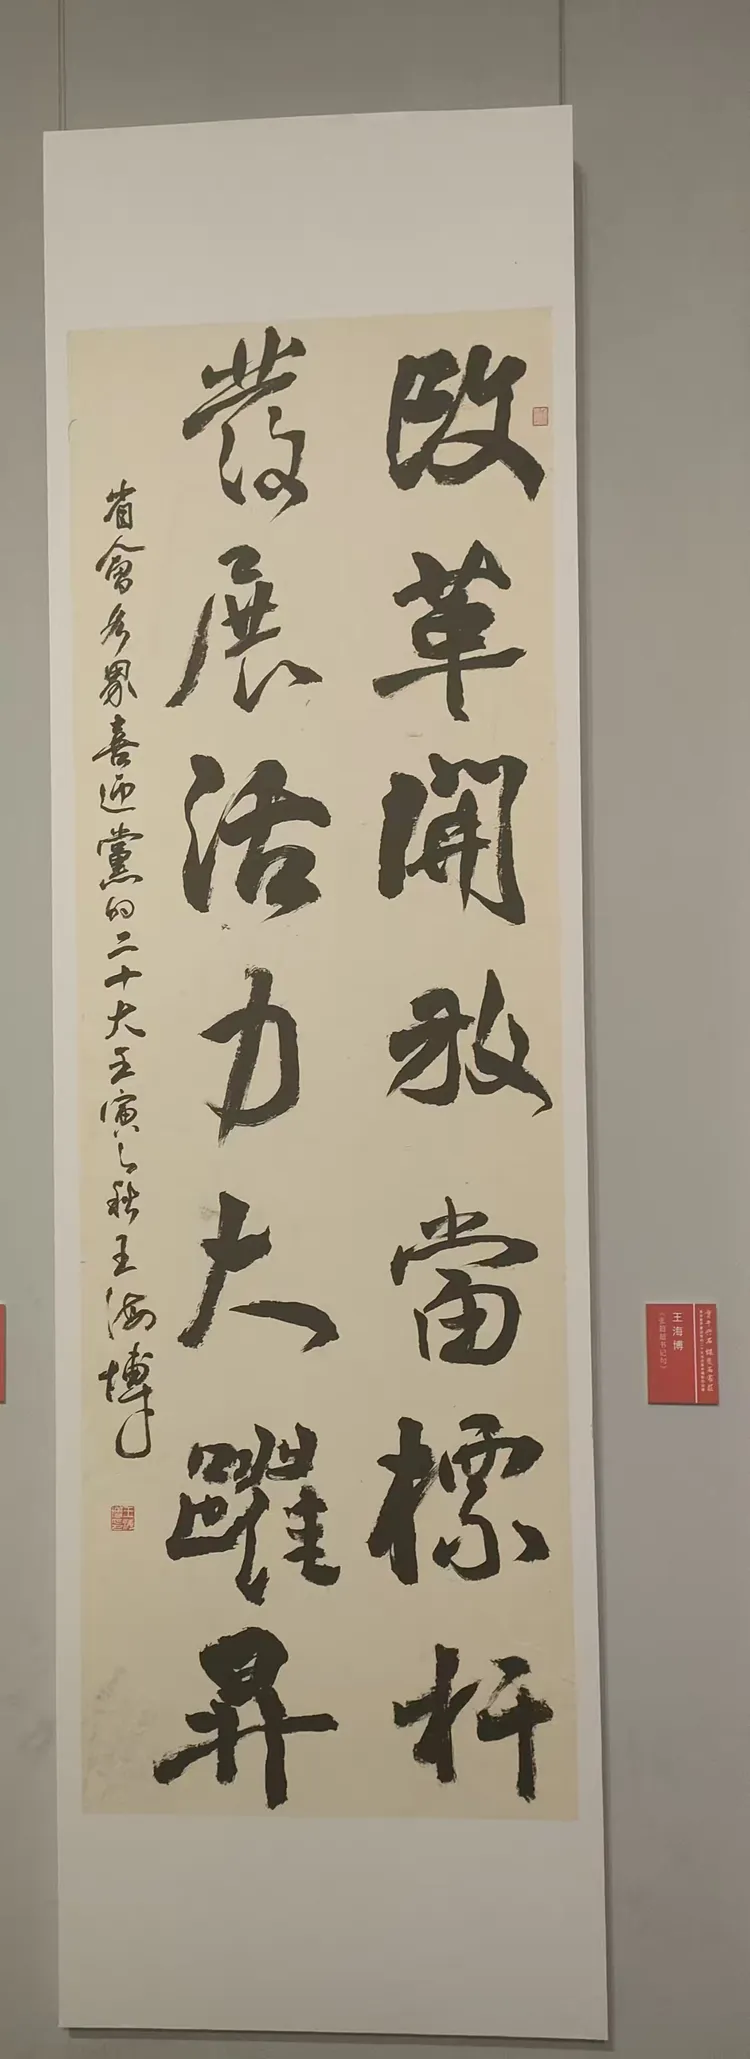 改革開放當標杆
發展活力大躍昇
省會各界喜迎黨的二十大壬寅之秋王海博
王海博